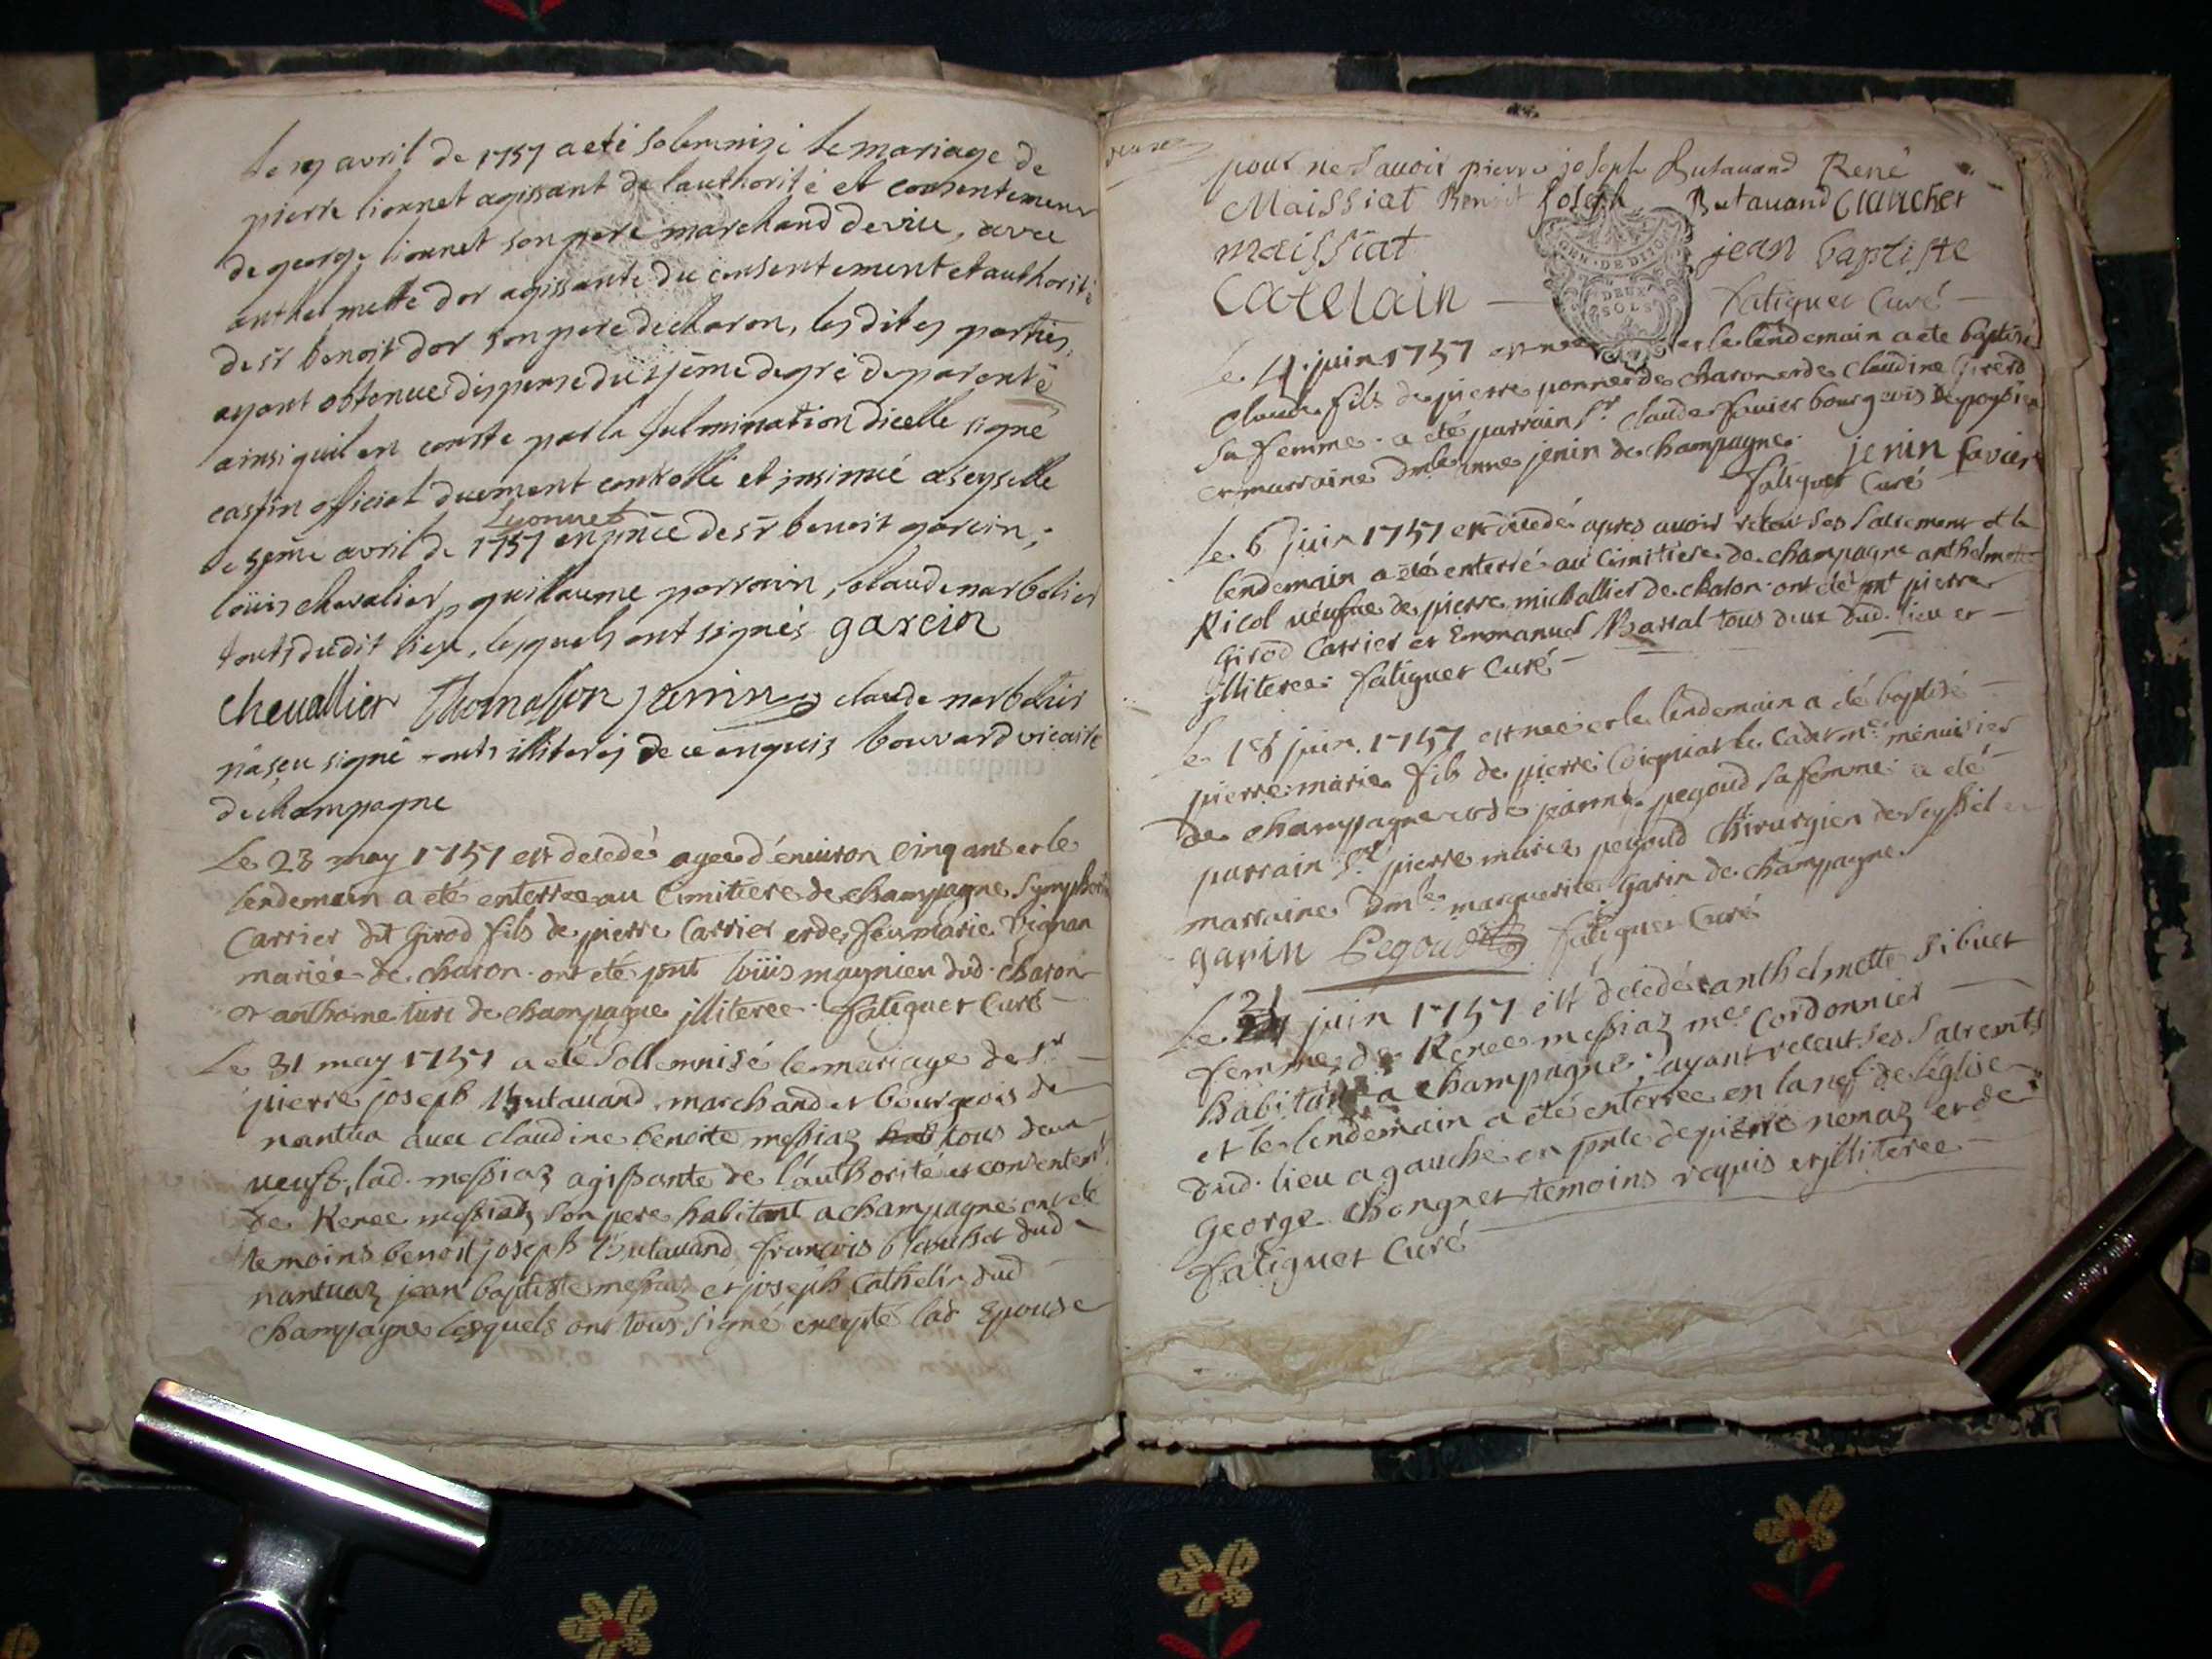 avril de 1757 a eté solemnizé le mariage de
pierre lionnet agissant de lauthorité et consentement
de george lionnet son pere marchand de , avec
anthelmette dor agissante du consentement et authorité
de sr benoit dor son pere de charon, les dites parties,
ayant obtenue dispense du degré de parenté
ainsi quil en conste par la fulmination dicelle signé
official duement controllé et insinué a seyselle
le avril de 1757 en pnce de sr benoit garcin,
Lyonnet
loüis chevalier, guillaume perrain, claude narbolier
touts dudit lieu, lesquels ont signés garcin
chevallier Thomasson claude narbolier
na sçu signé illiteré de ce enquis bouvard vicaire
de champagne
Le 23 may 1757 est decedé agee d'environ cinq ans et le
lendemain a eté enterree au cimitiere de champagne
Carrier dit Girod fils de pierre Carrier et de feu marie Vignan
mariée de charon. ont eté pnt loüis maynieu dud. charon
et anthoine de champagne illiteree. fatiguet Curé
Le 31 may 1757 a eté sollemnisé le mariage de sr
pierre joseph Butavand marchand et bourgeois de
nantua avec claudine benoite messiaz tous deux
veufs, lad. messiaz agissante de l'authorité et consentemt
de Renee messiaz son pere habitant a champagne ont eté
temoins benoit joseph Butavand, francois blanchet dud
nantuaz, jean baptiste messiaz et joseph Cathelin dud
champagne lesquels ont tous signé excepté lad Epouse
pour ne sauoir pierre joseph Butauand René
Maissiat Benoit Joseph Butauand Clanchet
maissiat jean baptiste
Catelain — fatiguet Curé —
GEN. DE DIJON
DEUX SOLS
Le 4 juin 1757 est né et le lendemain a ete baptisé
claude fils de pierre ponnet de charon et de claudine Girerd
sa femme. a été parrain sr. claude favier bourgeois de
et marraine dmle anne jenin de champagne. jenin favier
fatiguet Curé
Le 6 juin 1757 est decedé apres avoir receut ses sacrements et le
lendemain a eté enterré au Cimitiere de champagne anthelmette
Nicol veufue de pierre michallier de charon. ont eté pnt pierre
Girod Carrier et Emmanuel Barral tous deux dud. lieu et —
illiteree. fatiguet Curé —
Le 18 juin 1757 est nee et le lendemain a eté baptisé —
pierre marie fils de pierre Coigniat le Cadet me menuisier
de champagne et de jeanne pegoud sa femme. a eté
parrain sr. pierre marie pegoud chirurgien de seyssel et
marraine dmle marguerite Garin de champagne
garin Pegoud fatiguet Curé
Le 21 juin 1757 est decedé anthelmette sibuet
femme de Renee messiaz me Cordonnier —
habitant a champagne, ayant receut ses sacremts
et le lendemain a eté enterree en la nef de l'église
dud. lieu a gauche en pnte de pierre nemaz et de
George Chongnet temoins requis et illiteree —
fatiguet Curé